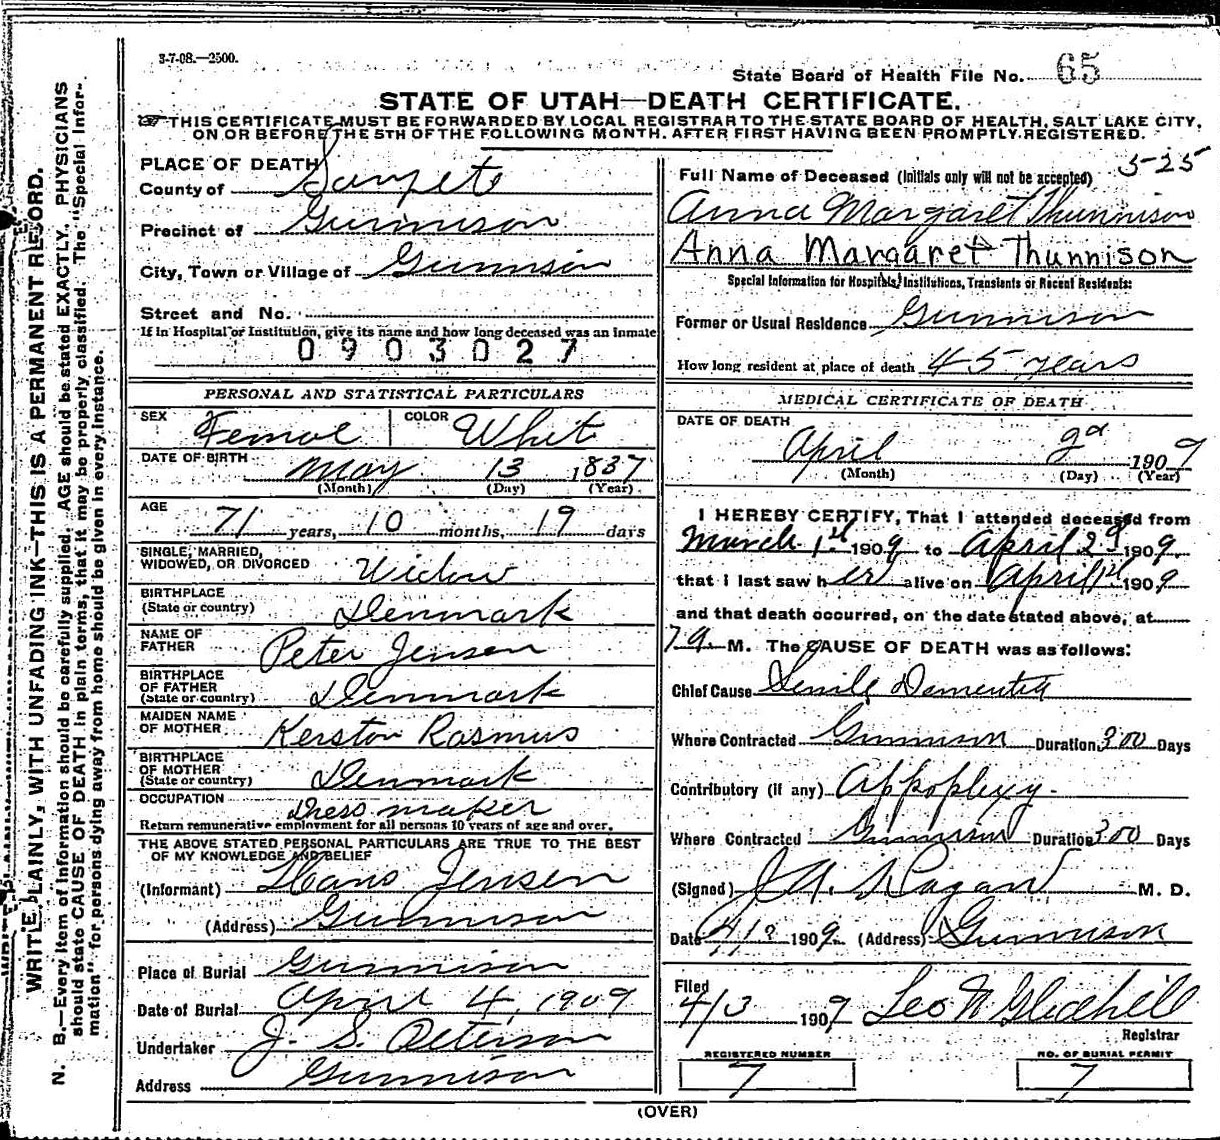 3-7-08.—2500.
State Board of Health File No. 65
STATE OF UTAH—DEATH CERTIFICATE.
THIS CERTIFICATE MUST BE FORWARDED BY LOCAL REGISTRAR TO THE STATE BOARD OF HEALTH, SALT LAKE CITY,
ON OR BEFORE THE 5TH OF THE FOLLOWING MONTH. AFTER FIRST HAVING BEEN PROMPTLY REGISTERED.
PLACE OF DEATH
County of Sanpete
Precinct of Gunnison
City, Town or Village of Gunnison
Street and No.
If in Hospital or Institution, give its name and how long deceased was an inmate
0903027
PERSONAL AND STATISTICAL PARTICULARS
SEX Femal COLOR Whit
DATE OF BIRTH May 13 1837
(Month) (Day) (Year)
AGE 71 years, 10 months, 19 days
SINGLE, MARRIED,
WIDOWED, OR DIVORCED Widow
BIRTHPLACE
(State or country) Denmark
NAME OF
FATHER Peter Jensen
BIRTHPLACE
OF FATHER
(State or country) Denmark
MAIDEN NAME
OF MOTHER Kerston Rasmus
BIRTHPLACE
OF MOTHER
(State or country) Denmark
OCCUPATION Dress maker
Return remunerative employment for all persons 10 years of age and over.
THE ABOVE STATED PERSONAL PARTICULARS ARE TRUE TO THE BEST
OF MY KNOWLEDGE AND BELIEF
(Informant) Hans Jensen
(Address) Gunnison
Place of Burial Gunnison
Date of Burial April 4, 1909
Undertaker J. S. Peterson
Address Gunnison
5-25
Full Name of Deceased (Initials only will not be accepted)
Anna Margaret Thunnison
Anna Margaret Thunnison
Special Information for Hospitals, Institutions, Transients or Recent Residents:
Former or Usual Residence Gunnison
How long resident at place of death 45 years
MEDICAL CERTIFICATE OF DEATH
DATE OF DEATH
April 2d 1909
(Month) (Day) (Year)
I HEREBY CERTIFY, That I attended deceased from
March 1st 1909 to April 2d 1909,
that I last saw her alive on April 1st 1909
and that death occurred, on the date stated above, at
7 a. M. The CAUSE OF DEATH was as follows:
Chief Cause Senile Dementia
Where Contracted Gunnison Duration 300 Days
Contributory (if any) Appoplexy.
Where Contracted Gunnison Duration 300 Days
(Signed) M. D.
Date 1909. (Address) Gunnison
Filed
4/3 1909 Leo N Gledhill
Registrar
REGISTERED NUMBER
7
NO. OF BURIAL PERMIT
7
(OVER)
WRITE PLAINLY, WITH UNFADING INK—THIS IS A PERMANENT RECORD.
N. B.—Every item of information should be carefully supplied. AGE should be stated EXACTLY. PHYSICIANS
should state CAUSE OF DEATH in plain terms, that it may be properly classified. The "Special Infor-
mation" for persons dying away from home should be given in every instance.